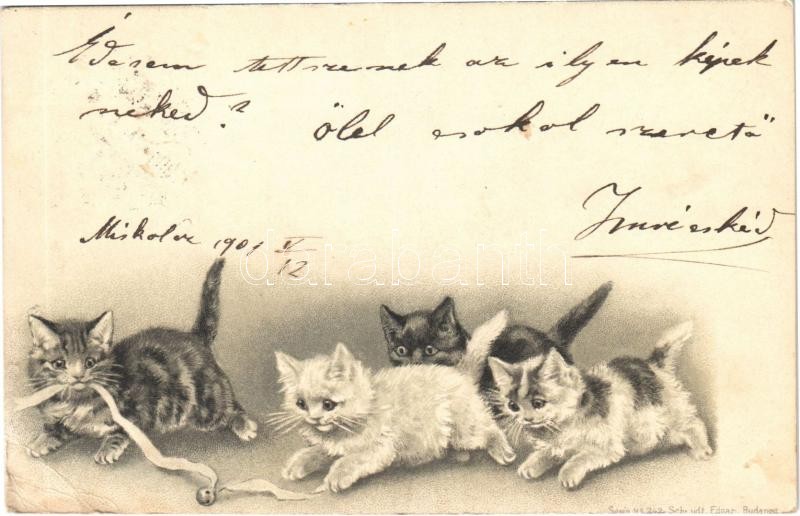 Édesem tettszenek az ilyen képek
neked? Ölel csokol szerető
Imréeskéd
Miskolcz 1901 V/12
darabanth
Serie No 242 Schmidt Edgar, Budapest